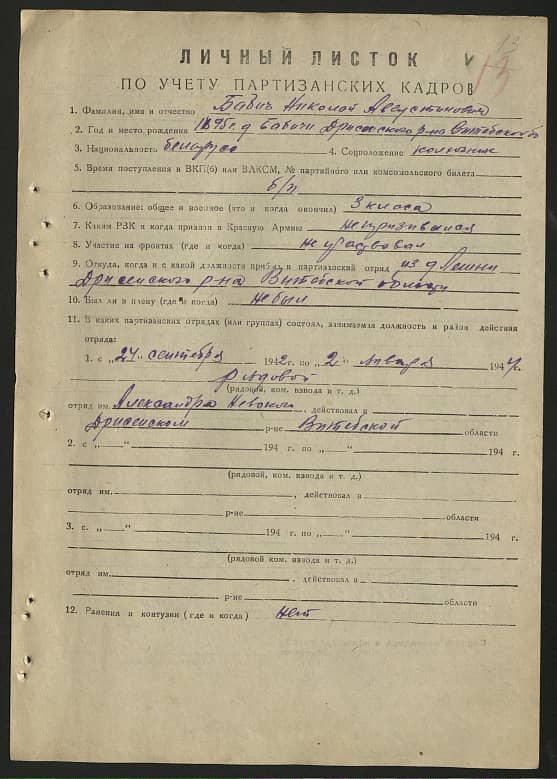 13
ЛИЧНЫЙ ЛИСТОК
ПО УЧЕТУ ПАРТИЗАНСКИХ КАДРОВ
1. Фамилия, имя и отчество Бабич Николай Августинович
2. Год и место рождения 1895 г. д Бабичи Дриссенского р-на Витебской об
3. Национальность белорусс 4. Соцположение колхозник
5. Время поступления в ВКП(б) или ВЛКСМ, № партийного или комсомольского билета
б/п
6. Образование: общее и военное (что и когда окончил) 3 класса
7. Каким РВК и когда призван в Красную Армию непризывался
8. Участие на фронтах (где и когда) не участвовал
9. Откуда, когда и с какой должности прибыл в партизанский отряд из д Ленино
Дриссенского р-на Витебской области
10. Был ли в плену (где и когда) не был
11. В каких партизанских отрядах (или группах) состоял, занимаемая должность и район действия
отряда:
1. с „24" сентября 1942 г. по „2" января 1944 г.
рядовой
(рядовой, ком. взвода и т. д.)
отряд им. Александра Невского, действовал в
Дриссенском р-не Витебской области
2. с „—" 194 г. по „—" 194 г.
(рядовой, ком. взвода и т. д.)
отряд им. , действовал в
р-не области
3. с. „—" 194 г. по „—" 194 г.
(рядовой, ком. взвода и т. д.)
отряд им. , действовал в
р-не области
12. Ранения и контузии (где и когда) нет